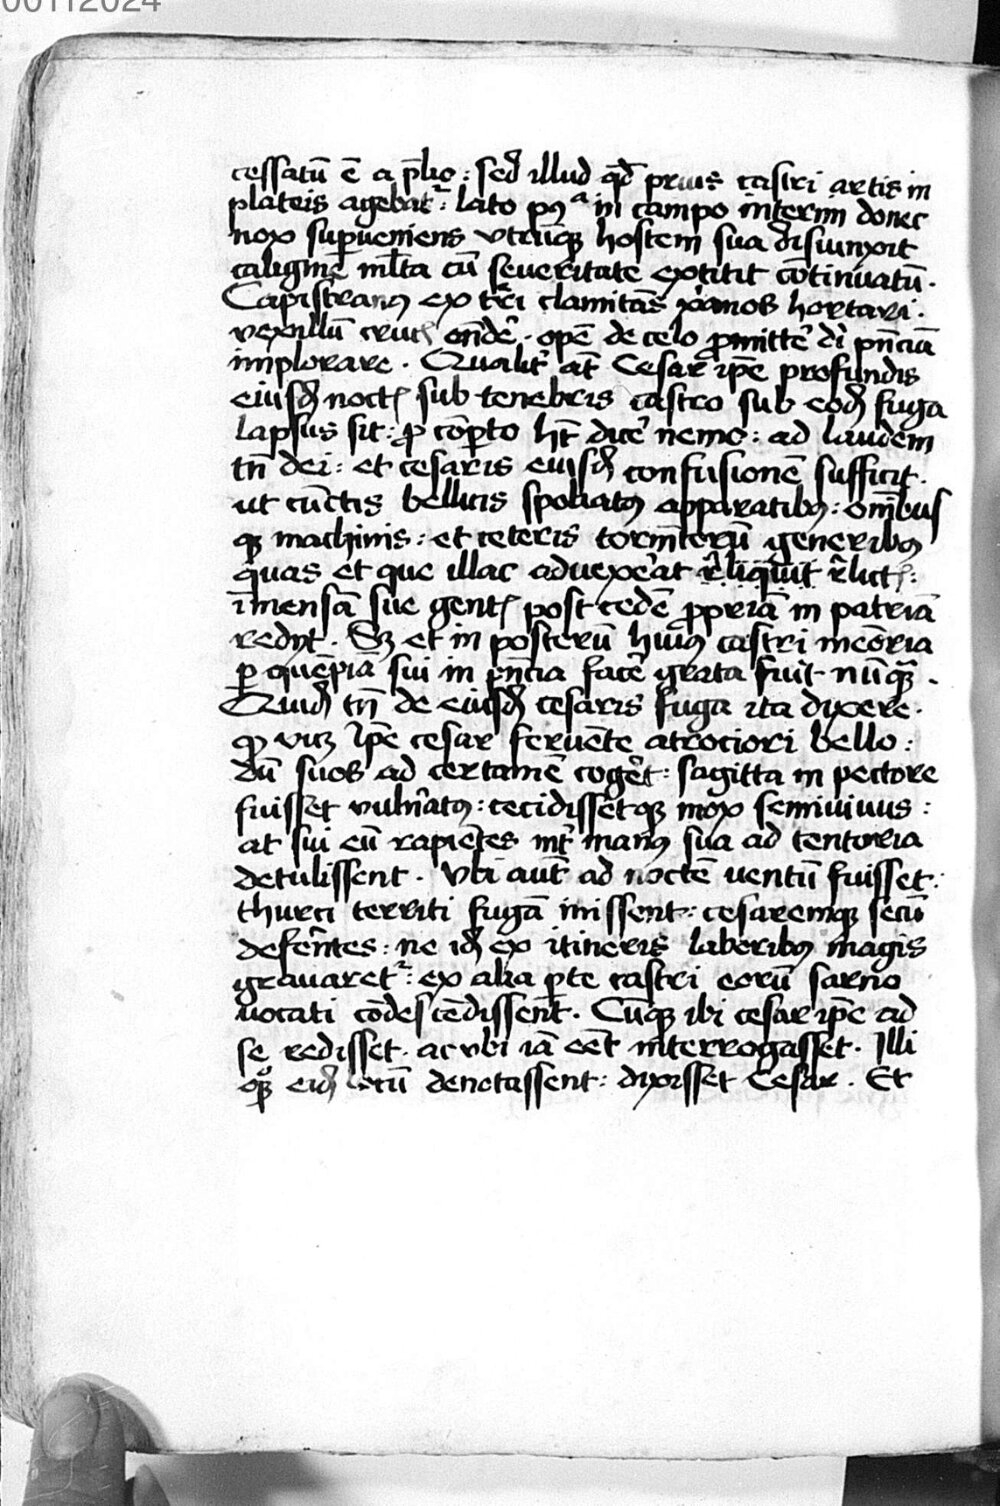 00112024
cessatū ē a p̄lio : sed illud qd̄ prius castri artis in
plateis agebat᷑ : lato pꝰᵃ in campo interim donec
nox suꝑueniens vtrūqꝫ hostem sua disiunxit
caligine ml̄ta cū seueritate extitit cōtinuatū .
Capistranꝰ ex t̄ri clamitās xp̄anos hortari .
vexillū crucꝭ on̄de᷑ . opē de celo ꝓmitte᷑ di p̄nciā
implorare . Qualit᷑ at̄ Cesar ip̄e profundis
eiusd̄ noctꝭ sub tenebris castro sub eod̄ fuga
lapsus sit : ꝓ cōꝑto h̄t dice᷑ nemo : ad laudem
tn̄ dei : et cesaris eiusd̄ confusionē sufficit .
ut cūctis bellicis spoliatꝰ apparatibꝰ : om̄ibus
qꝫ machinis : et ceteris tormētorū generibꝰ
quas et que illac aduexe᷑at r᷑liquit r᷑lictꝭ :
īmensā sue gentꝭ post cedē ꝓpriā in patriā
redijt . Sꝫ et in posterū huiꝰ castri meōria
ꝑ quēpiā sui in p̄ncia face᷑ grata fuit nūqꝫ .
Quid̄ tn̄ de eiusd̄ cesaris fuga ita dixere .
ꝙ vicꝫ ip̄e cesar feruēte atrociori bello :
dū suos ad certamē coge᷑t : sagitta in pectore
fuisset vuln᷑atꝰ : cecidissetqꝫ mox semiuiuus :
at sui eū rapiētes int᷑ manꝰ sua ad tentoria
detulissent . Vbi aut̄ ad noctē uentū fuisset :
thurci territi fugā inissent : cesaremqꝫ secū
defe᷑ntes : ne id̄ ex itineris laboribꝰ magis
grauaret᷑ : ex alia ꝑte castri eorū sarno
uocati cōdescēdissent . Cūqꝫ ibi cesar ip̄e ad
se redisset . ac vbi iā eēt interrogasset . Illi
eid̄ denotassent : dixisset Cesar . Et